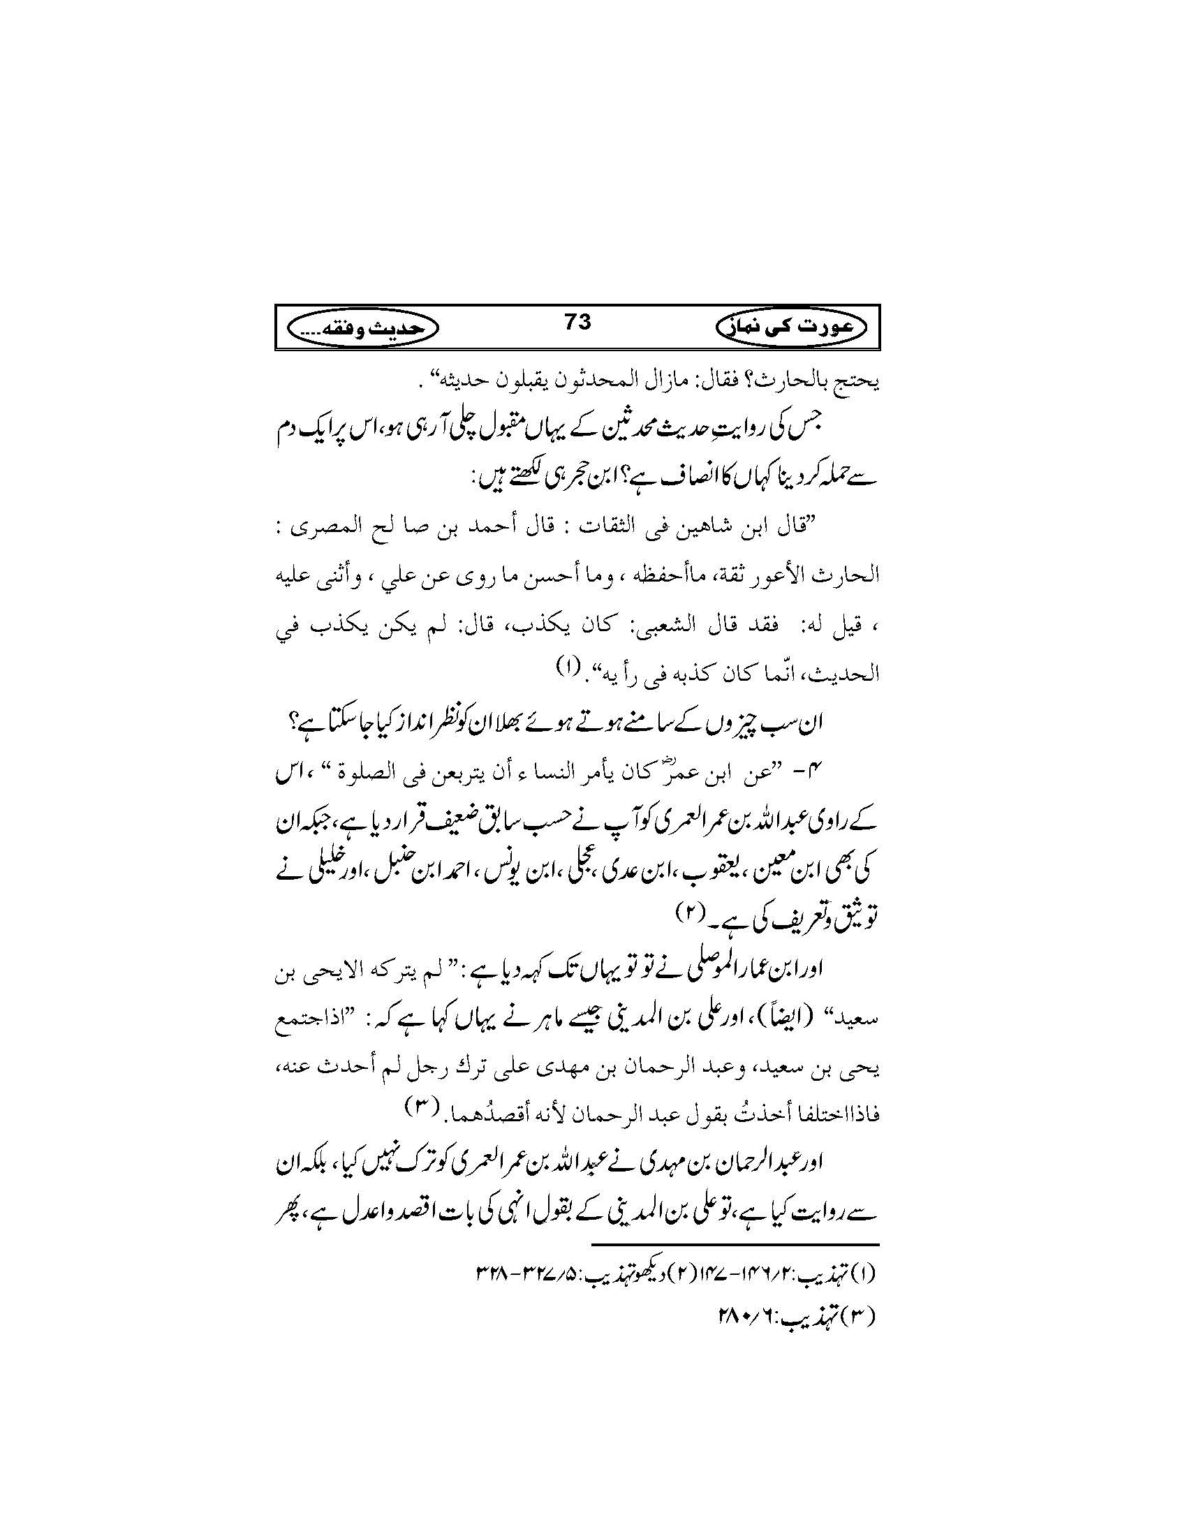 عورت کی نماز 73 حدیث و فقہ....
يحتج بالحارث؟ فقال: مازال المحدثون يقبلون حديثه“ .
جس کی روایتِ حدیث محدثین کے یہاں مقبول چلی آ رہی ہو،اس پرایک دم
سے حملہ کر دینا کہاں کا انصاف ہے؟ ابن حجر ہی لکھتے ہیں:
”قال ابن شاهين فى الثقات : قال أحمد بن صا لح المصرى :
الحارث الأعور ثقة، ماأحفظه ، وما أحسن ما روى عن علي ، وأثنى عليه
، قيل له: فقد قال الشعبى: كان يكذب، قال: لم يكن يكذب في
الحديث، انّما كان كذبه فى رأ يه“. (۱)
ان سب چیزوں کے سامنے ہوتے ہوئے بھلا ان کو نظر انداز کیا جا سکتا ہے؟
۴- ”عن ابن عمرؓ كان يأمر النسا ء أن يتربعن فى الصلوة “ ،اس
کے راوی عبد اللہ بن عمر العمری کو آپ نے حسب سابق ضعیف قرار دیا ہے، جبکہ ان
کی بھی ابن معین ،یعقوب ،ابن عدی ،عجلی ،ابن یونس ،احمد ابن حنبل ،اور خلیلی نے
توثیق وتعریف کی ہے۔(۲)
اور ابن عمار الموصلی نے تو تو یہاں تک کہہ دیا ہے :” لم يتركه الايحى بن
سعيد“ (ایضاً)، اور علی بن المدینی جیسے ماہر نے یہاں کہا ہے کہ: ”اذااجتمع
يحى بن سعيد، وعبد الرحمان بن مهدى على ترك رجل لم أحدث عنه،
فاذااختلفا أخذتُ بقول عبد الرحمان لأنه أقصدُهما. (۳)
اور عبد الرحمان بن مہدی نے عبد اللہ بن عمر العمری کو ترک نہیں کیا، بلکہ ان
سے روایت کیا ہے،تو علی بن المدینی کے بقول انہی کی بات اقصد واعدل ہے، پھر
(۱) تہذیب:۲/۱۴۶-۱۴۷(۲)دیکھو تہذیب:۵/۳۲۷-۳۲۸
(۳)تہذیب:۶/۲۸۰